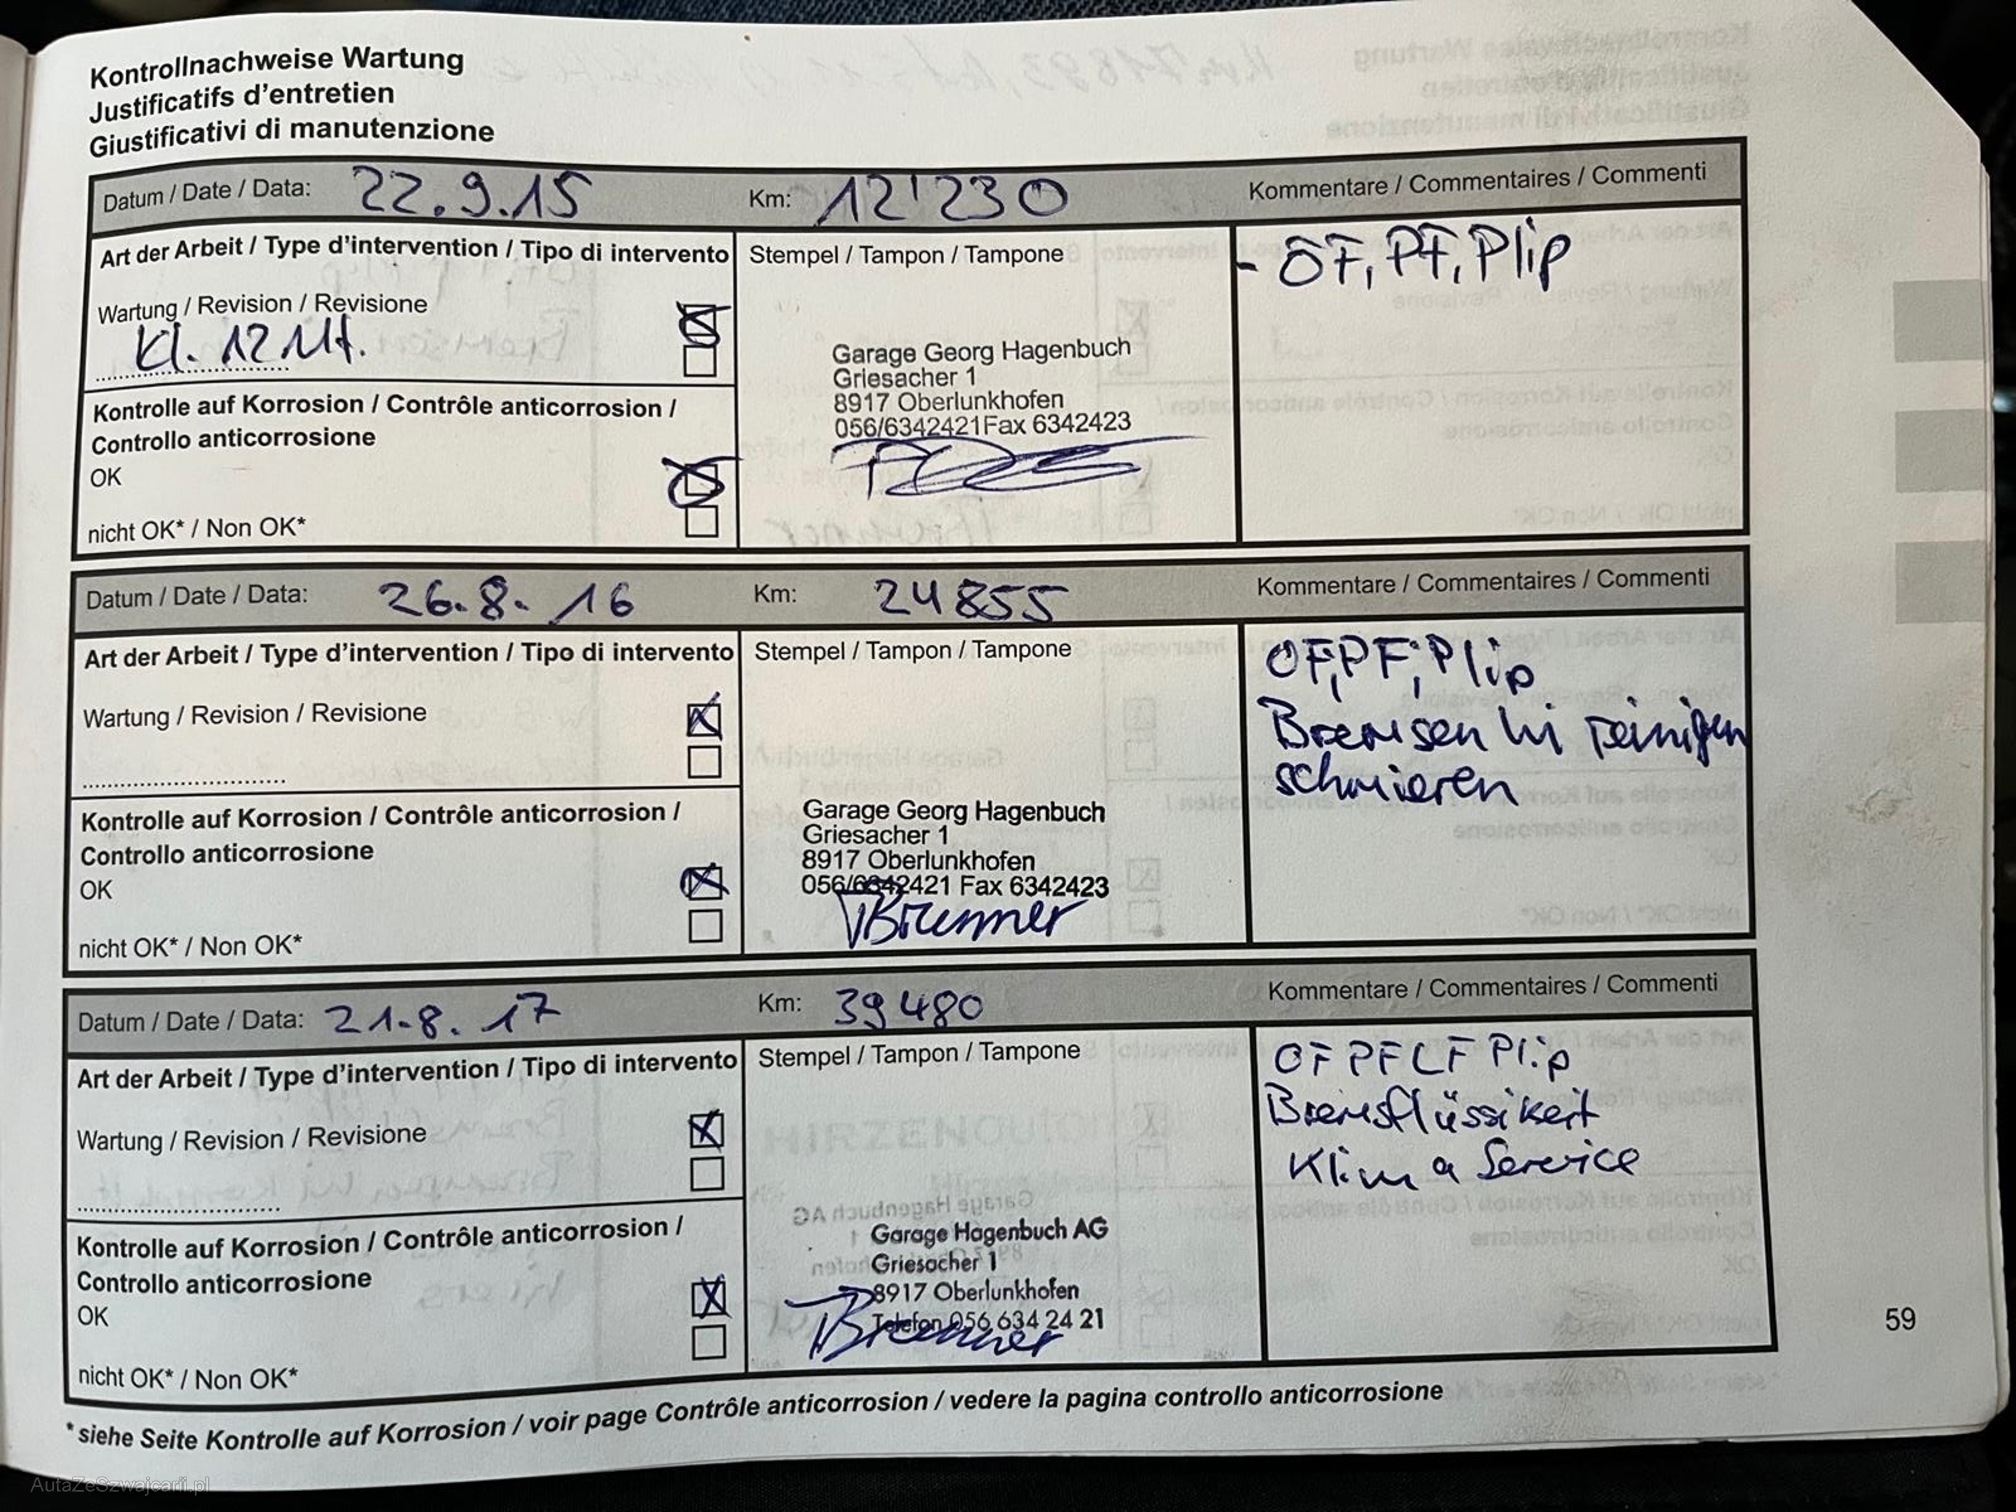 Kontrollnachweise Wartung
Justificatifs d'entretien
Giustificativi di manutenzione
Datum / Date / Data: 22.9.15 Km: 12'230 Kommentare / Commentaires / Commenti
Art der Arbeit / Type d'intervention / Tipo di intervento Stempel / Tampon / Tampone - ÖF, PF, Plip
Wartung / Revision / Revisione
Kl. 12 Mt.
Garage Georg Hagenbuch
Griesacher 1
8917 Oberlunkhofen
056/6342421 Fax 6342423
Kontrolle auf Korrosion / Contrôle anticorrosion /
Controllo anticorrosione
OK
nicht OK* / Non OK*
Datum / Date / Data: 26.8.16 Km: 24855 Kommentare / Commentaires / Commenti
Art der Arbeit / Type d'intervention / Tipo di intervento Stempel / Tampon / Tampone OF, PF, Plip
Bremsen hi reinigen
schmieren
Wartung / Revision / Revisione
Garage Georg Hagenbuch
Griesacher 1
8917 Oberlunkhofen
056/6342421 Fax 6342423
Brunner
Kontrolle auf Korrosion / Contrôle anticorrosion /
Controllo anticorrosione
OK
nicht OK* / Non OK*
Datum / Date / Data: 21.8.17 Km: 39480 Kommentare / Commentaires / Commenti
Art der Arbeit / Type d'intervention / Tipo di intervento Stempel / Tampon / Tampone OF PF LF Plip
Bremsflüssikeit
Klima Service
Wartung / Revision / Revisione
Garage Hagenbuch AG
Griesacher 1
8917 Oberlunkhofen
Telefon 056 634 24 21
Brunner
Kontrolle auf Korrosion / Contrôle anticorrosion /
Controllo anticorrosione
OK
nicht OK* / Non OK*
59
*siehe Seite Kontrolle auf Korrosion / voir page Contrôle anticorrosion / vedere la pagina controllo anticorrosione
AutaZeSzwajcarii.pl